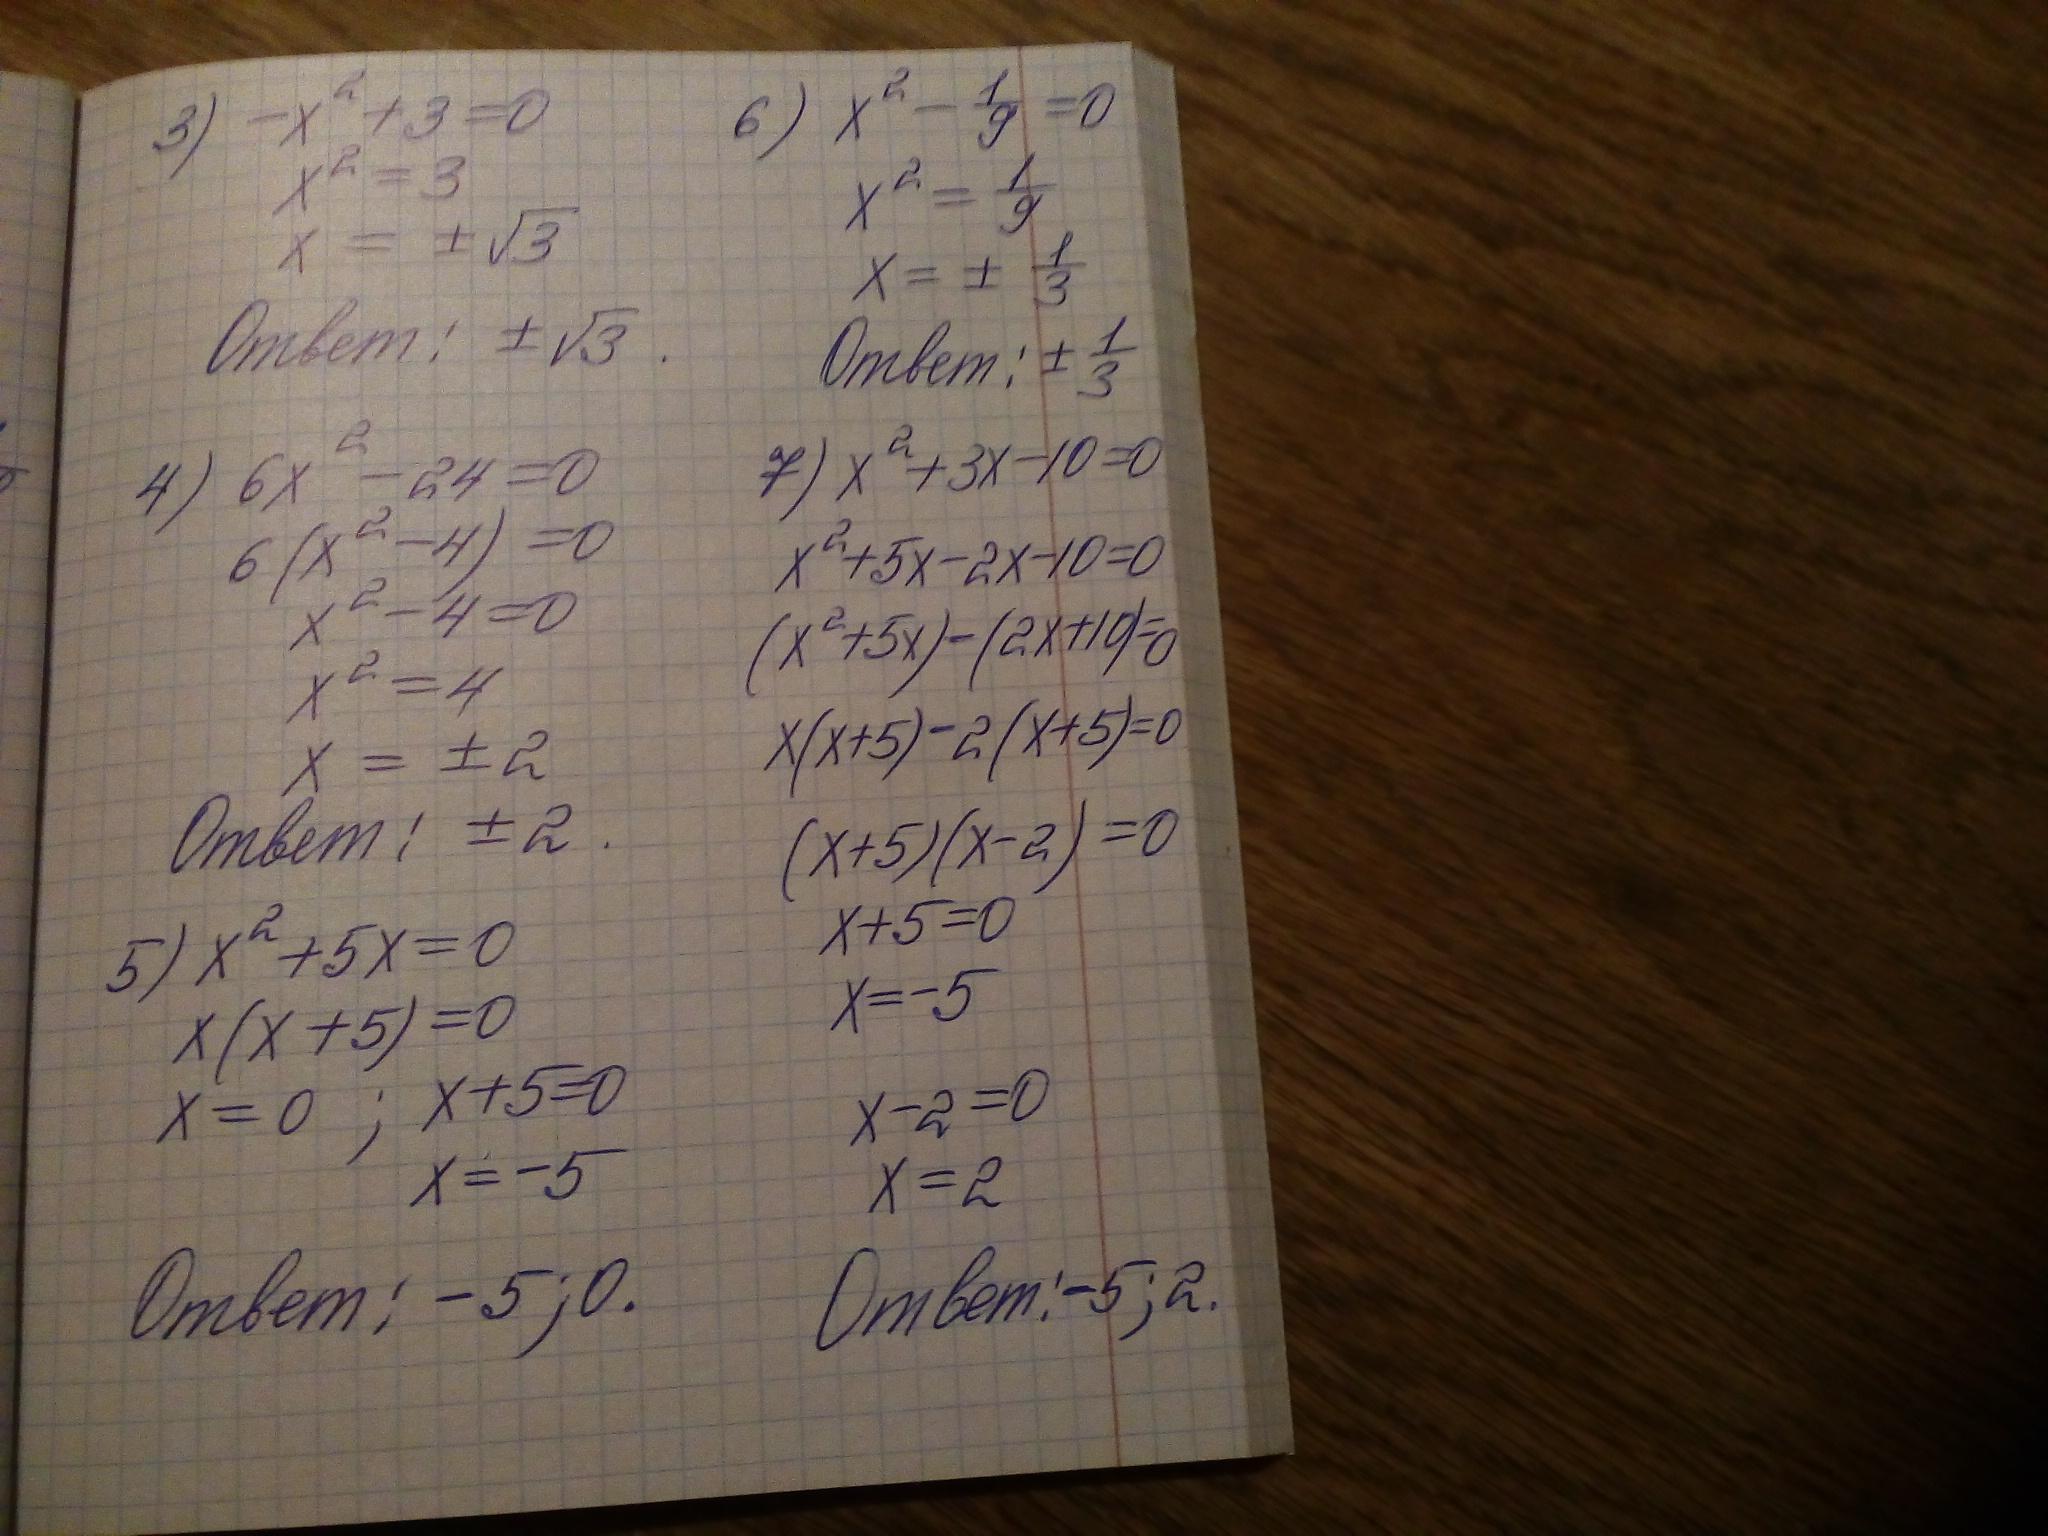 3) -x² + 3 = 0
x² = 3
x = ± √3
Ответ: ± √3 .
4) 6x² - 24 = 0
6(x² - 4) = 0
x² - 4 = 0
x² = 4
x = ± 2
Ответ: ± 2 .
5) x² + 5x = 0
x(x + 5) = 0
x = 0 ; x + 5 = 0
x = -5
Ответ: -5; 0.
6) x² - 1/9 = 0
x² = 1/9
x = ± 1/3
Ответ: ± 1/3
7) x² + 3x - 10 = 0
x² + 5x - 2x - 10 = 0
(x² + 5x) - (2x + 10) = 0
x(x + 5) - 2(x + 5) = 0
(x + 5)(x - 2) = 0
x + 5 = 0
x = -5
x - 2 = 0
x = 2
Ответ: -5; 2.